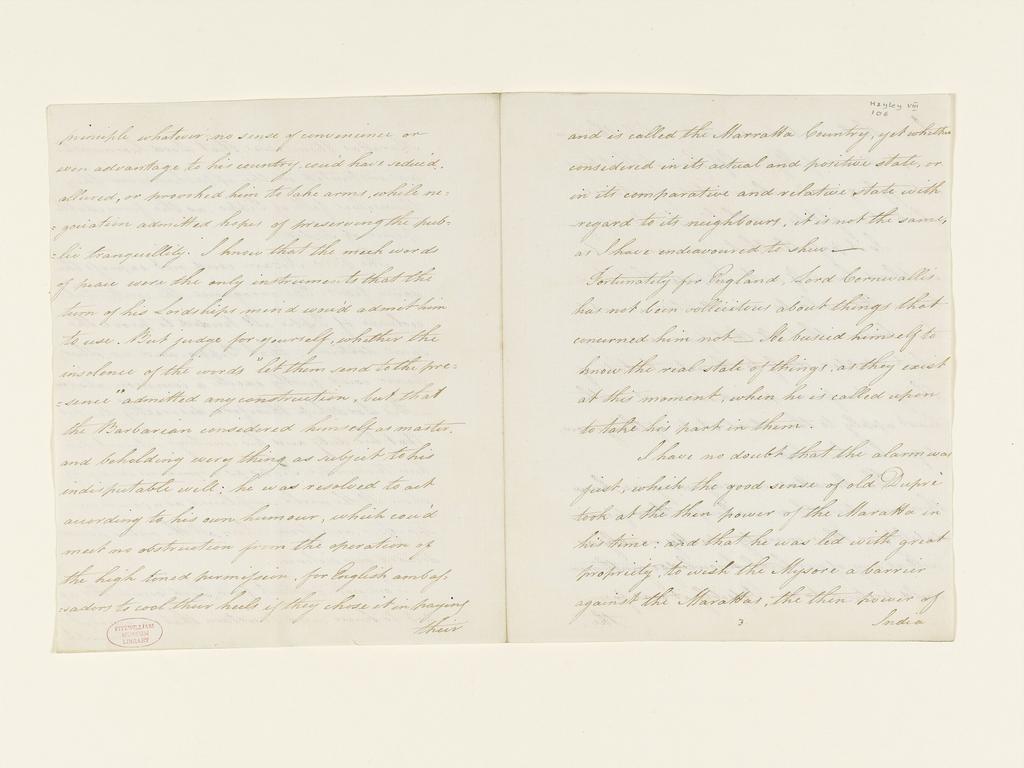 principle whatever, no sense of convenience or
even advantage to his country cou'd have seduc'd,
allured, or provoked him to take arms, while ne=
=gociation admitted hopes of preserving the pub=
=lic tranquillity. I know that the meek words
of peace were the only instruments that the
turn of his Lordships mind wou'd admit him
to use. But judge for yourself, whether the
insolence of the words "let them send to the pre=
=sence" admitted any construction, but that
the Barbarean considered himself as master,
and beholding every thing as subject to his
indisputable will: he was resolved to act
according to his own humour, which cou'd
meet no obstruction from the operation of
the high toned permission, for English ambas,
=sadors to cool their heels if they chose it in paying
their
FITZWILLIAM
MUSEUM
LIBRARY
Hayley VIII
106
and is called the Marratta Country, yet whether
considered in its actual and positive state, or
in its comparative and relative state with
regard to its neighbours, it is not the same,
as I have endeavoured to shew —
Fortunately for England, Lord Cornwallis
has not been sollicitous about things that
concerned him not — He busied himself to
know the real state of things, as they exist
at this moment, when he is called upon
to take his part in them.
I have no doubt that the alarm was
just, which the good sense of old Dupré
took at the then power of the Maratta in
his time: and that he was led with great
propriety, to wish the Mysore a barrier
against the Marattas, the then power of
3
India